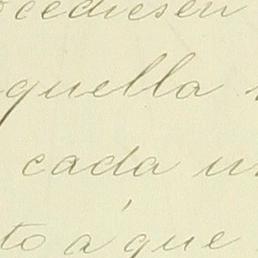 cediesen
quella
cada un
to á que